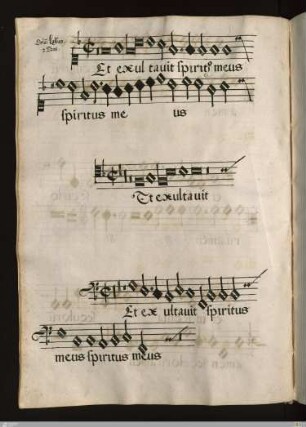 Et exul tavit spiritus meus
spiritus me us
Et exultavit
Et ex ultavit spiritus
meus spiritus meus